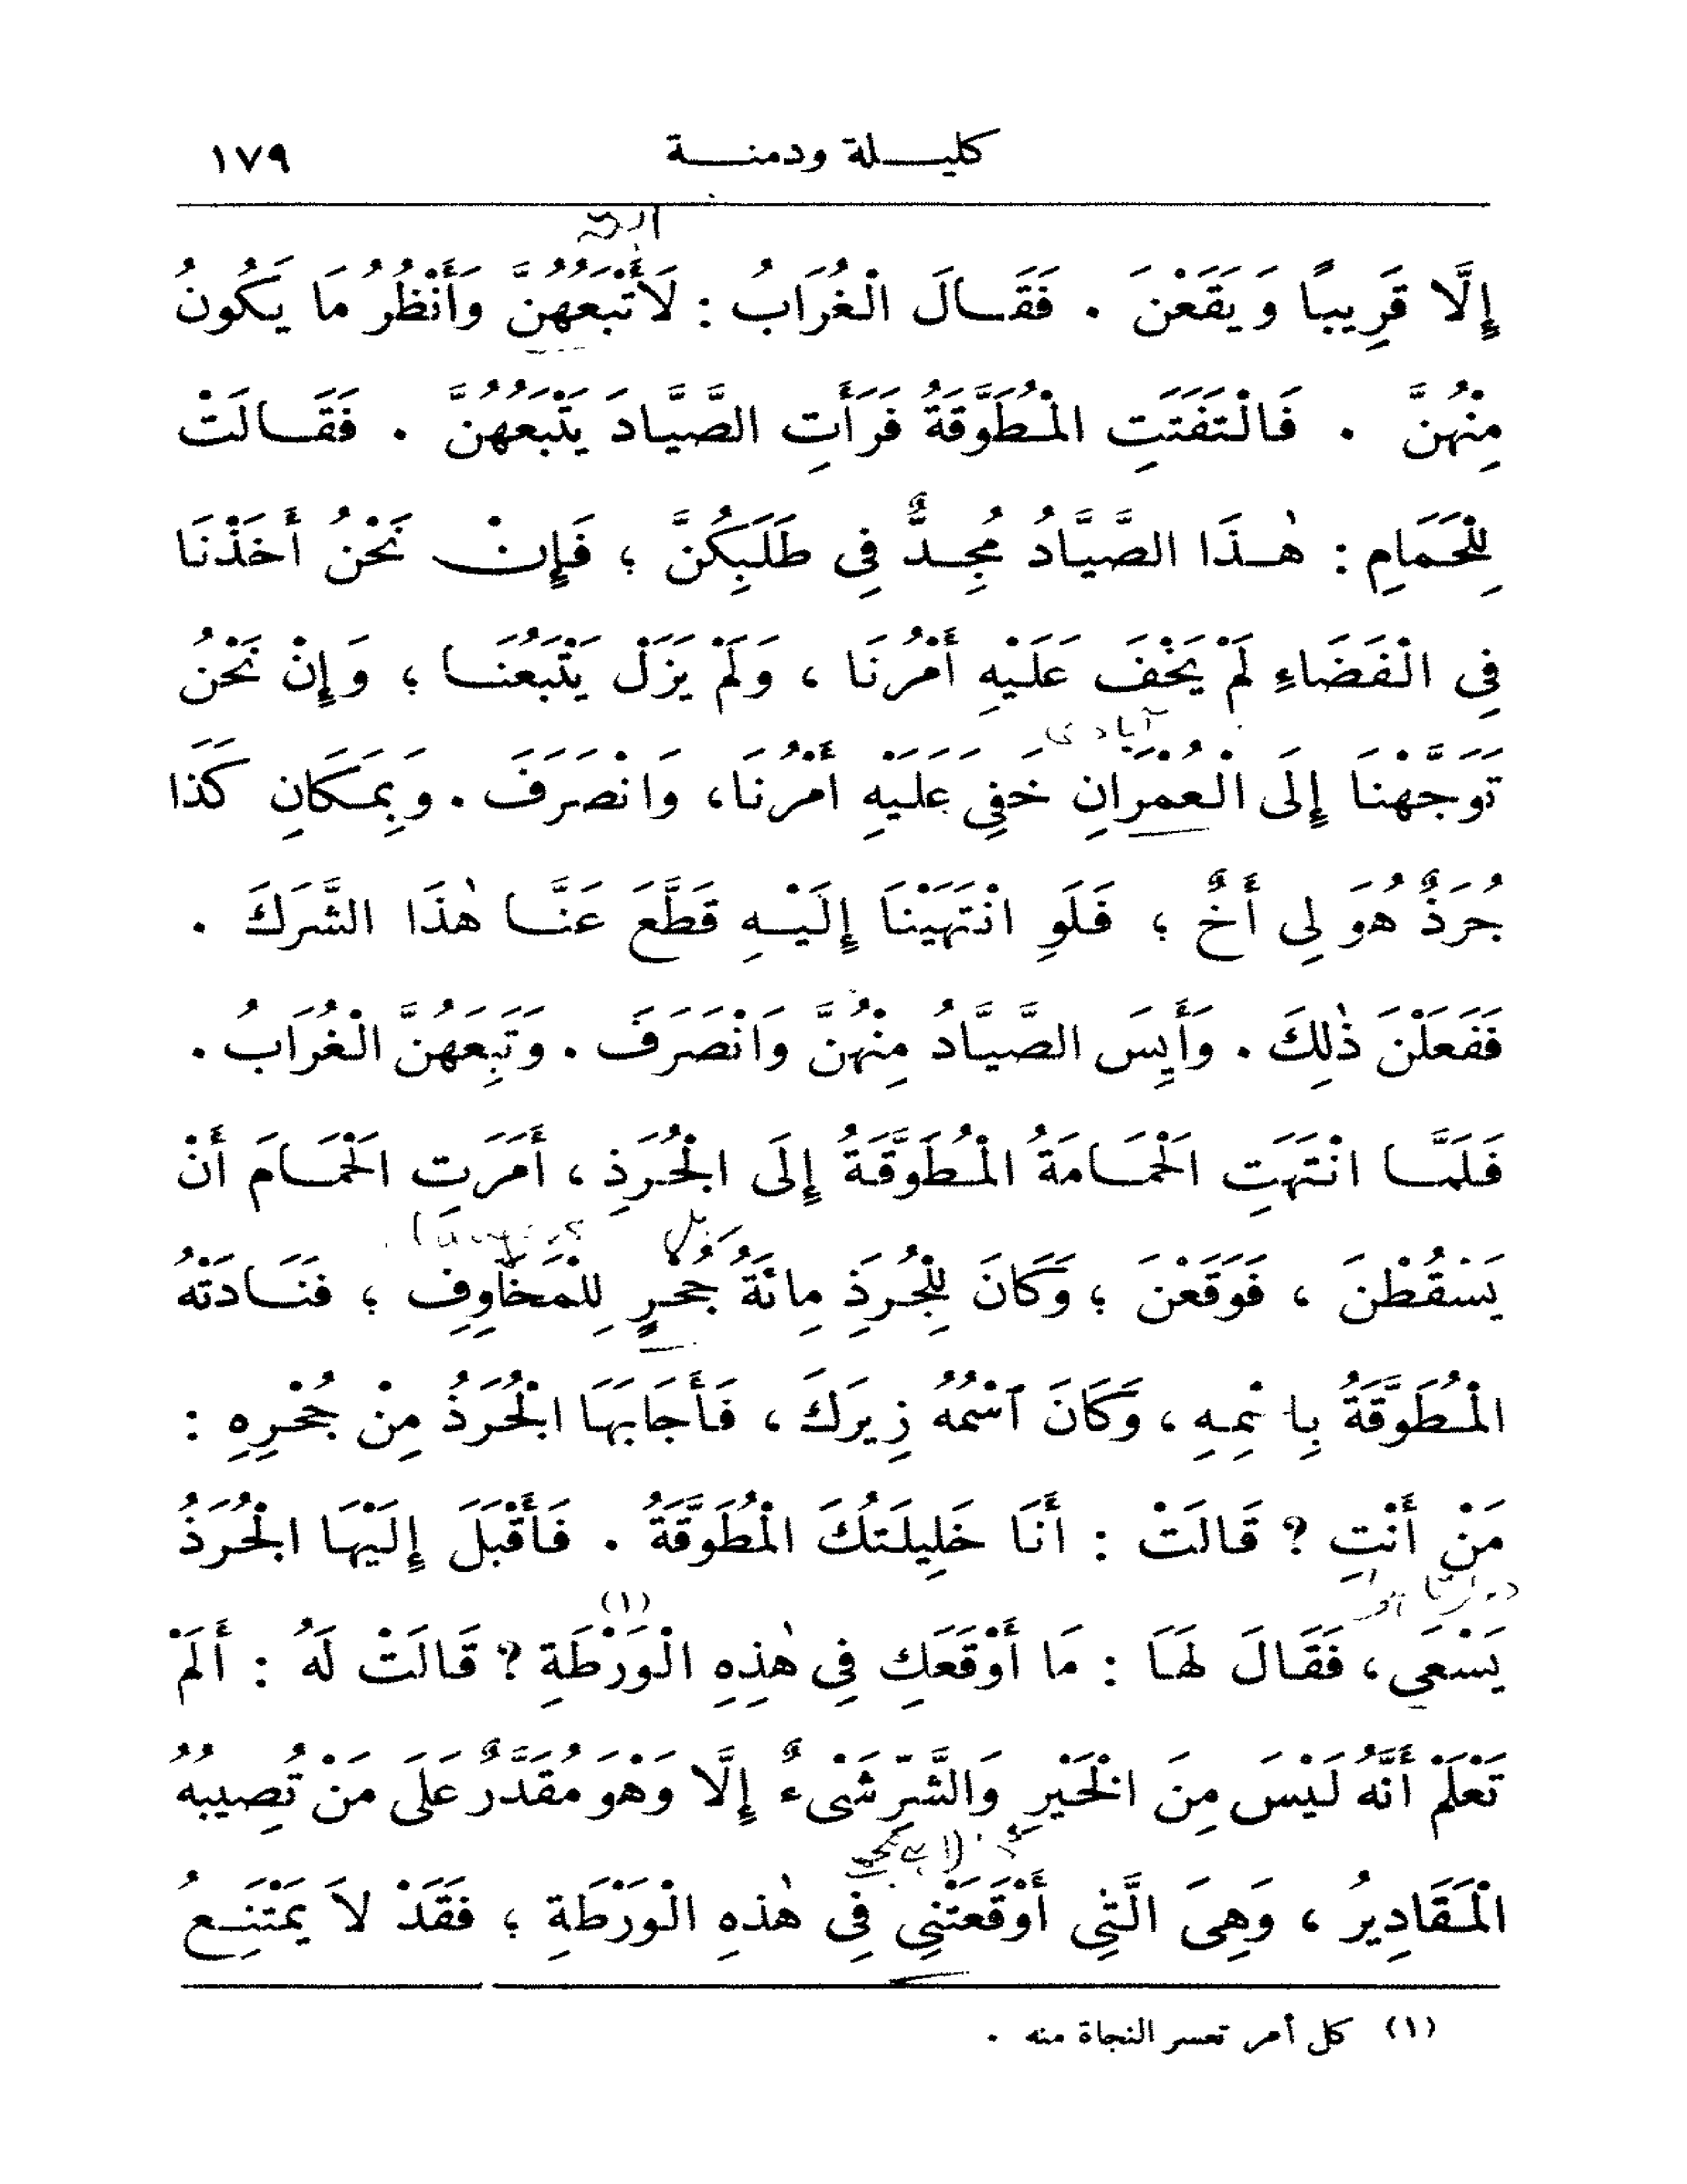 كليلة ودمنة ١٧٩
إِلَّا قَرِيبًا وَيَقَعْنَ . فَقَالَ الْغُرَابُ : لَأَتْبَعُهُنَّ وَأَنْظُرُ مَا يَكُونُ
مِنْهُنَّ . فَالْتَفَتَتِ الْمُطَوَّقَةُ فَرَأَتِ الصَّيَّادَ يَتْبَعُهُنَّ . فَقَالَتْ
لِلْحَمَامِ : هٰذَا الصَّيَّادُ مُجِدٌّ فِى طَلَبِكُنَّ ؛ فَإِنْ نَحْنُ أَخَذْنَا
فِى الْفَضَاءِ لَمْ يَخْفَ عَلَيْهِ أَمْرُنَا ، وَلَمْ يَزَلْ يَتْبَعُنَا ؛ وَإِنْ نَحْنُ
آبادى
تَوَجَّهْنَا إِلَى الْعُمْرَانِ خَفِىَ عَلَيْهِ أَمْرُنَا، وَانْصَرَفَ . وَبِمَكَانِ كَذَا
جُرَذٌ هُوَ لِى أَخٌ ؛ فَلَوِ انْتَهَيْنَا إِلَيْهِ قَطَّعَ عَنَّا هٰذَا الشَّرَكَ .
فَفَعَلْنَ ذٰلِكَ . وَأَيِسَ الصَّيَّادُ مِنْهُنَّ وَانْصَرَفَ . وَتَبِعَهُنَّ الْغُرَابُ .
فَلَمَّا انْتَهَتِ الْحَمَامَةُ الْمُطَوَّقَةُ إِلَى الْجُرَذِ ، أَمَرَتِ الْحَمَامَ أَنْ
يَسْقُطْنَ ، فَوَقَعْنَ ؛ وَكَانَ لِلْجُرَذِ مِائَةُ جُحْرٍ لِلْمَخَاوِفِ ؛ فَنَادَتْهُ
الْمُطَوَّقَةُ بِاسْمِهِ ، وَكَانَ ٱسْمُهُ زِيرَكَ ، فَأَجَابَهَا الْجُرَذُ مِنْ جُحْرِهِ :
مَنْ أَنْتِ ؟ قَالَتْ : أَنَا خَلِيلَتُكَ الْمُطَوَّقَةُ . فَأَقْبَلَ إِلَيْهَا الْجُرَذُ
يَسْعَى ، فَقَالَ لَهَا : مَا أَوْقَعَكِ فِى هٰذِهِ الْوَرْطَةِ (١) ؟ قَالَتْ لَهُ : أَلَمْ
تَعْلَمْ أَنَّهُ لَيْسَ مِنَ الْخَيْرِ وَالشَّرِّ شَىْءٌ إِلَّا وَهْوَ مُقَدَّرٌ عَلَى مَنْ تُصِيبُهُ
الْمَقَادِيرُ ، وَهِىَ الَّتِى أَوْقَعَتْنِى فِى هٰذِهِ الْوَرْطَةِ ؛ فَقَدْ لَا يَمْتَنِعُ
(١) كل أمر تعسر النجاة منه .